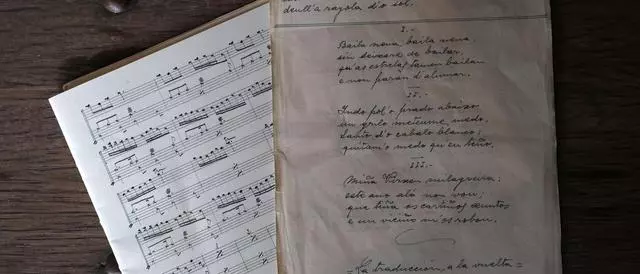 deull'a rayola d'o sol.
I.-
Baila nena baila nena,
sin deixare de bailar,
qu'as estrelas tamen bailan
e non parán d'alumar.
II.-
Indo pol-o prado abaixo
un grilo meteume medo,
Santo d'o cabalo blanco;
quitam'o medo qu'eu teño.
III.-
Miña Virxen milagreira;
este ano alá non vou;
que tiña os cartiños xuntos
e un viciño m'os robou.
=La traducción, a la vuelta=